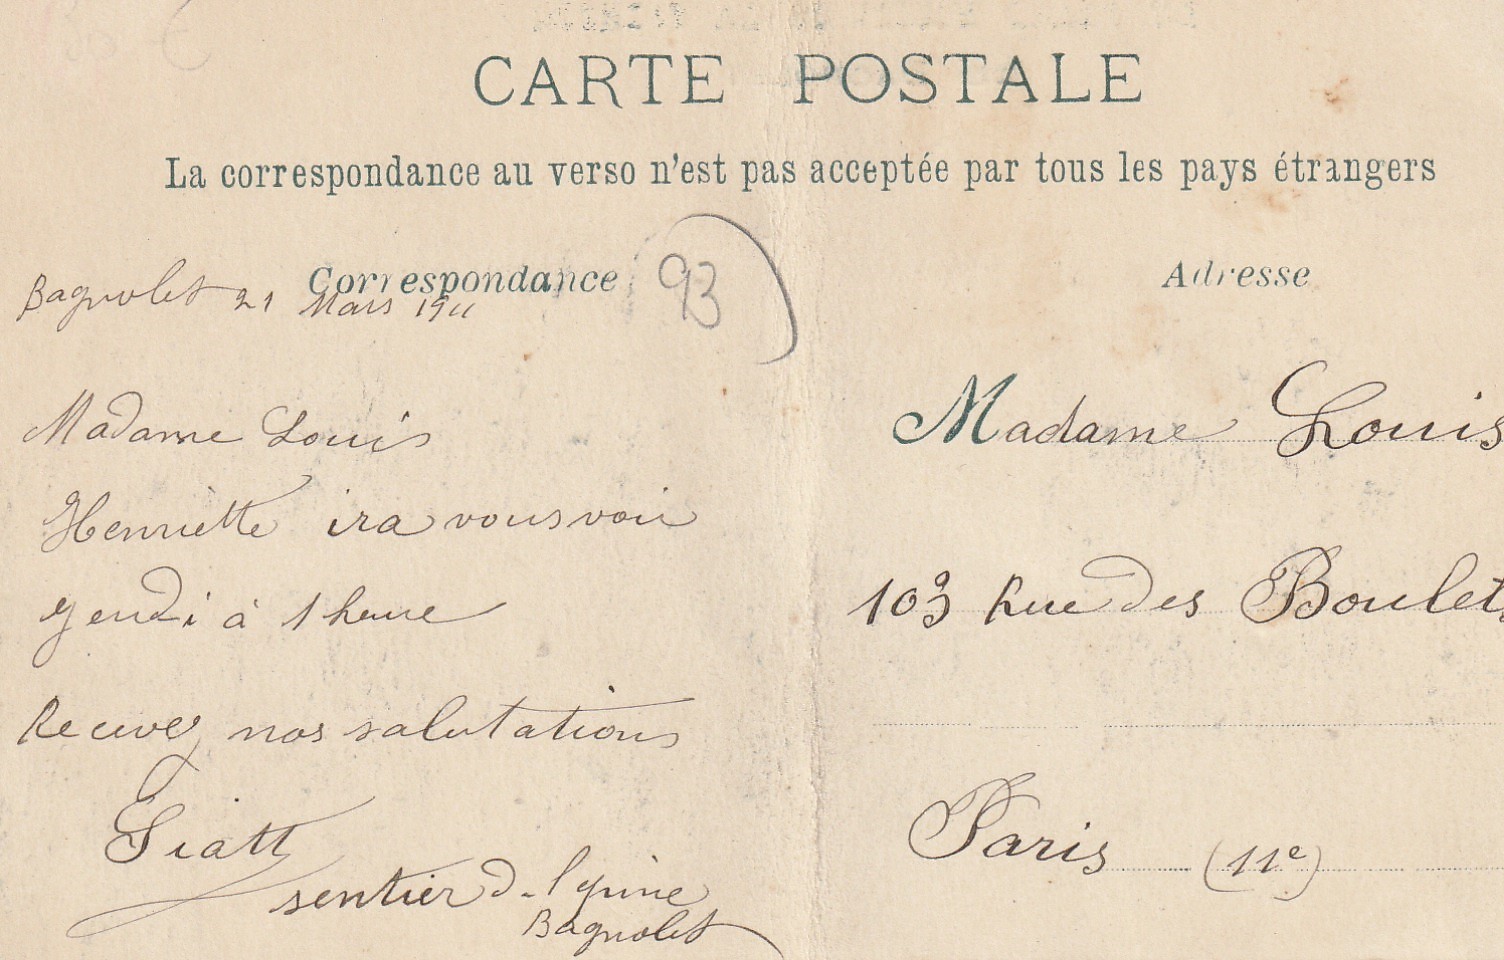 CARTE POSTALE
La correspondance au verso n'est pas acceptée par tous les pays étrangers
Correspondance
93
Adresse
Bagnolet 21 Mars 1911
Madame Louis
Henriette ira vous voir
jeudi à 1 heure
Recevez nos salutations
sentier
Bagnolet
Madame Louis
103 Rue des Boulets
Paris (11e)